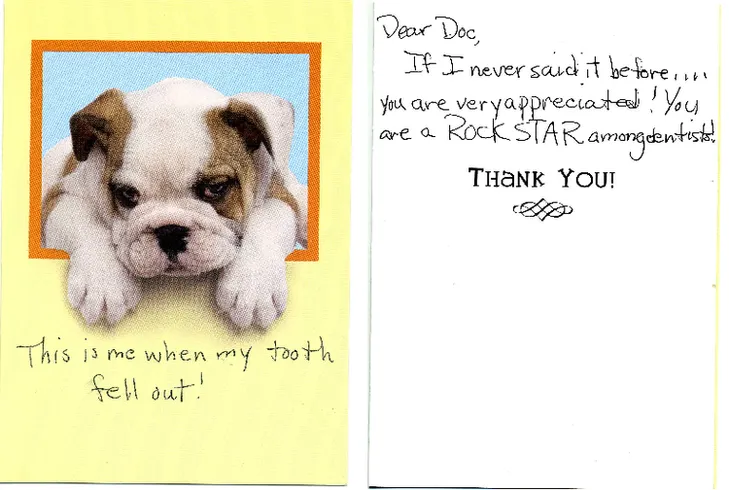 This is me when my tooth
fell out!
Dear Doc,
If I never said it before....
you are very appreciated! You
are a ROCK STAR among dentists!
THANK YOU!